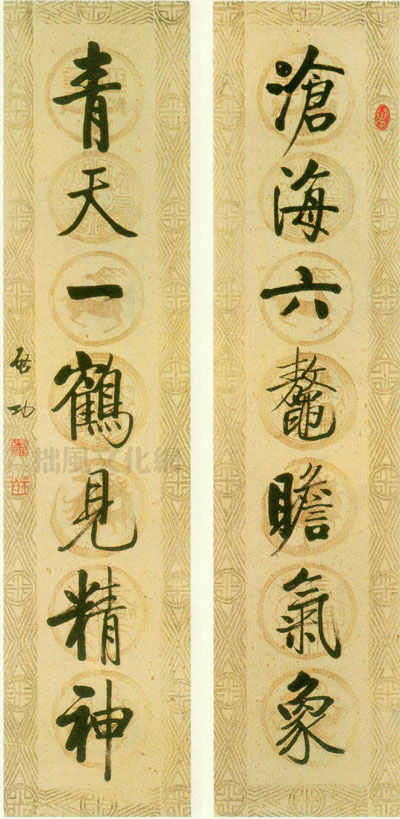 滄海六鼇瞻氣象
青天一鶴見精神
啟功
拙風文化網